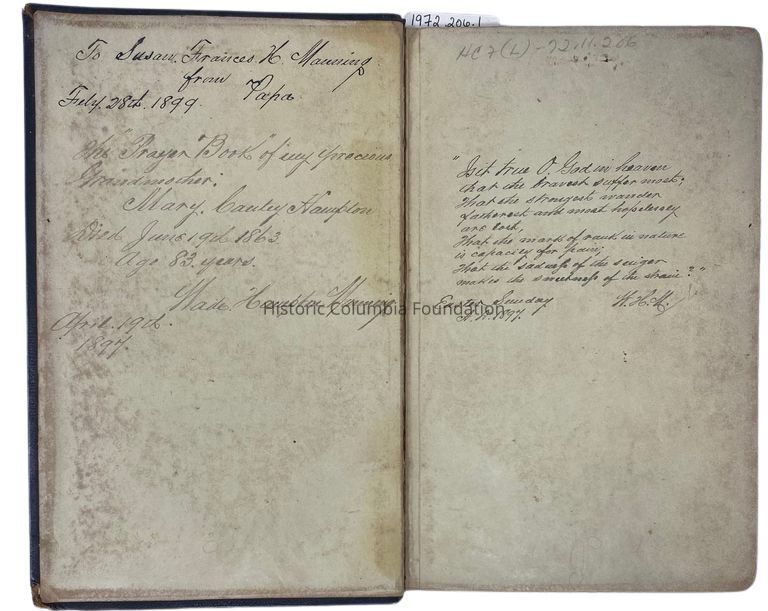 To Susan Frances H. Manning
from Papa
Feby. 28th. 1899.
The "Prayer Book" of my precious
Grandmother.
Mary Cantey Hampton
Died June 19th 1863
Age 83 years.
Wade Hampton Manning
April. 19th.
1897.
1972.206.1
HC7(L)-22.11.206
"Is it true O, God in heaven
that the bravest suffer most;
That the strongest wander
fartherest and most hopelessly
are lost,
That the mark of rank in nature
is capacity for pain;
That the sadness of the singer
makes the sweetness of the strain?"
Easter Sunday
1897.
W.H.M.
Historic Columbia Foundation